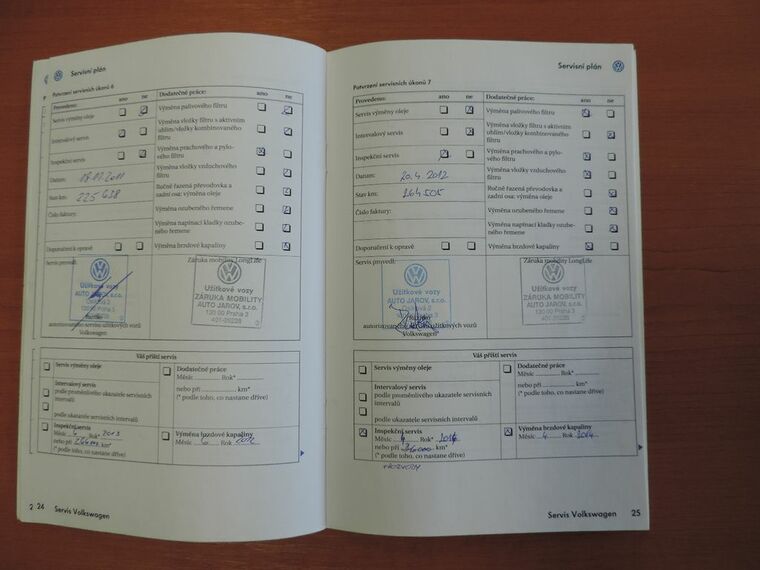 Servisní plán
Potvrzení servisních úkonů 6
Provedeno: ano ne
Dodatečné práce: ano ne
Servis výměny oleje
Intervalový servis
Inspekční servis
Datum:
Stav km: 225 638
Číslo faktury:
Doporučení k opravě
Výměna palivového filtru
Výměna vložky filtru s aktivním
uhlím/vložky kombinovaného
filtru
Výměna prachového a pylo-
vého filtru
Výměna vložky vzduchového
filtru
Ručně řazená převodovka a
zadní osa: výměna oleje
Výměna ozubeného řemene
Výměna napínací kladky ozube-
ného řemene
Výměna brzdové kapaliny
Servis provedl:
Užitkové vozy
AUTO JAROV, s.r.o.
130 00 Praha 3
autorizovaného servisu užitkových vozů
Volkswagen
Záruka mobility LongLife
Užitkové vozy
ZÁRUKA MOBILITY
AUTO JAROV, s.r.o.
130 00 Praha 3
Váš příští servis
Servis výměny oleje
Intervalový servis
podle proměnlivého ukazatele servisních
intervalů
podle ukazatele servisních intervalů
Inspekční servis
Měsíc 6 Rok* 2013
nebo při km*
(* podle toho, co nastane dříve)
Dodatečné práce
Měsíc Rok*
nebo při km*
(* podle toho, co nastane dříve)
Výměna brzdové kapaliny
Měsíc 6 Rok 2012
24 Servis Volkswagen
Servisní plán
Potvrzení servisních úkonů 7
Provedeno: ano ne
Dodatečné práce: ano ne
Servis výměny oleje
Intervalový servis
Inspekční servis
Datum: 20.4.2012
Stav km: 264 505
Číslo faktury:
Doporučení k opravě
Výměna palivového filtru
Výměna vložky filtru s aktivním
uhlím/vložky kombinovaného
filtru
Výměna prachového a pylo-
vého filtru
Výměna vložky vzduchového
filtru
Ručně řazená převodovka a
zadní osa: výměna oleje
Výměna ozubeného řemene
Výměna napínací kladky ozube-
ného řemene
Výměna brzdové kapaliny
Servis provedl:
Užitkové vozy
AUTO JAROV, s.r.o.
130 00 Praha 3
autorizovaného servisu užitkových vozů
Volkswagen
Záruka mobility LongLife
Užitkové vozy
ZÁRUKA MOBILITY
AUTO JAROV, s.r.o.
130 00 Praha 3
Váš příští servis
Servis výměny oleje
Intervalový servis
podle proměnlivého ukazatele servisních
intervalů
podle ukazatele servisních intervalů
Inspekční servis
Měsíc 4 Rok* 2014
nebo při km*
(* podle toho, co nastane dříve)
ROZVODY
Dodatečné práce
Měsíc Rok*
nebo při km*
(* podle toho, co nastane dříve)
Výměna brzdové kapaliny
Měsíc 4 Rok 2014
Servis Volkswagen 25